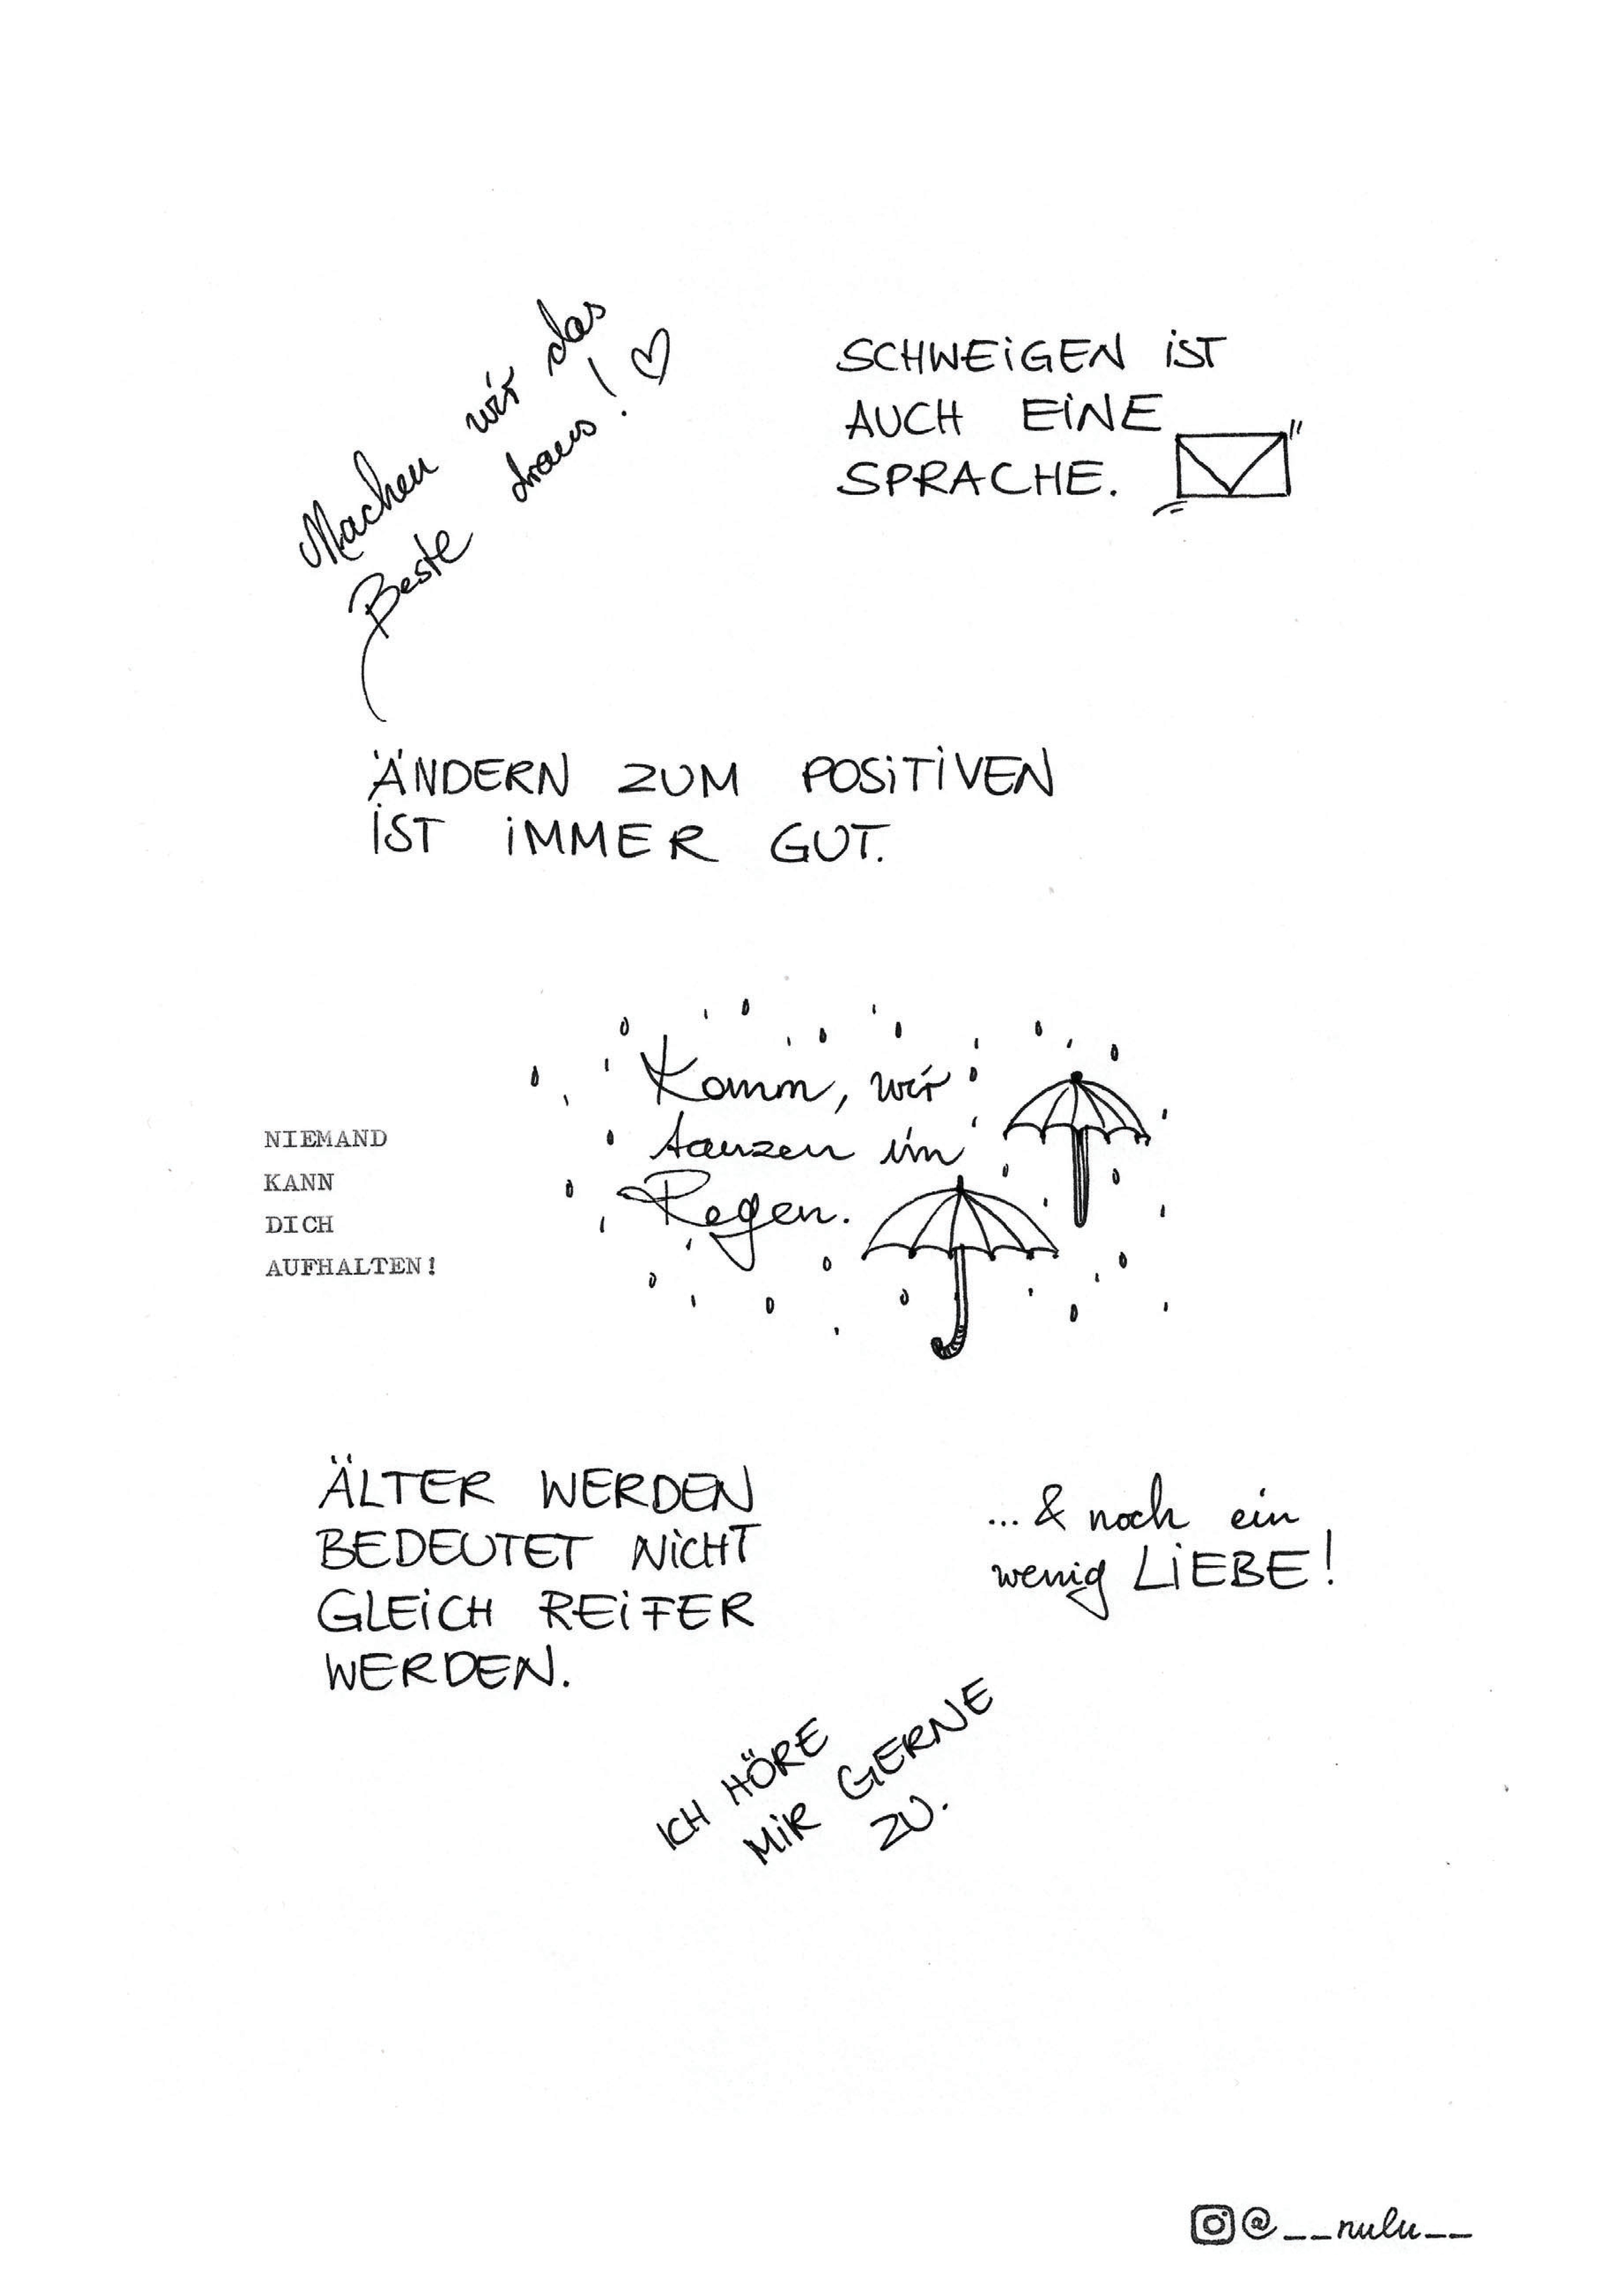 Machen wir das
Beste draus!
SCHWEiGEN iST
AUCH EiNE
SPRACHE.
ÄNDERN ZUM POSiTiVEN
iST iMMER GUT.
Komm, wir
tanzen im
Regen.
NIEMAND
KANN
DICH
AUFHALTEN!
ÄLTER WERDEN
BEDEUTET NiCHT
GLEiCH REiFER
WERDEN.
...& noch ein
wenig LiEBE!
ICH HÖRE
MiR GERNE
ZU.
@__nulu__